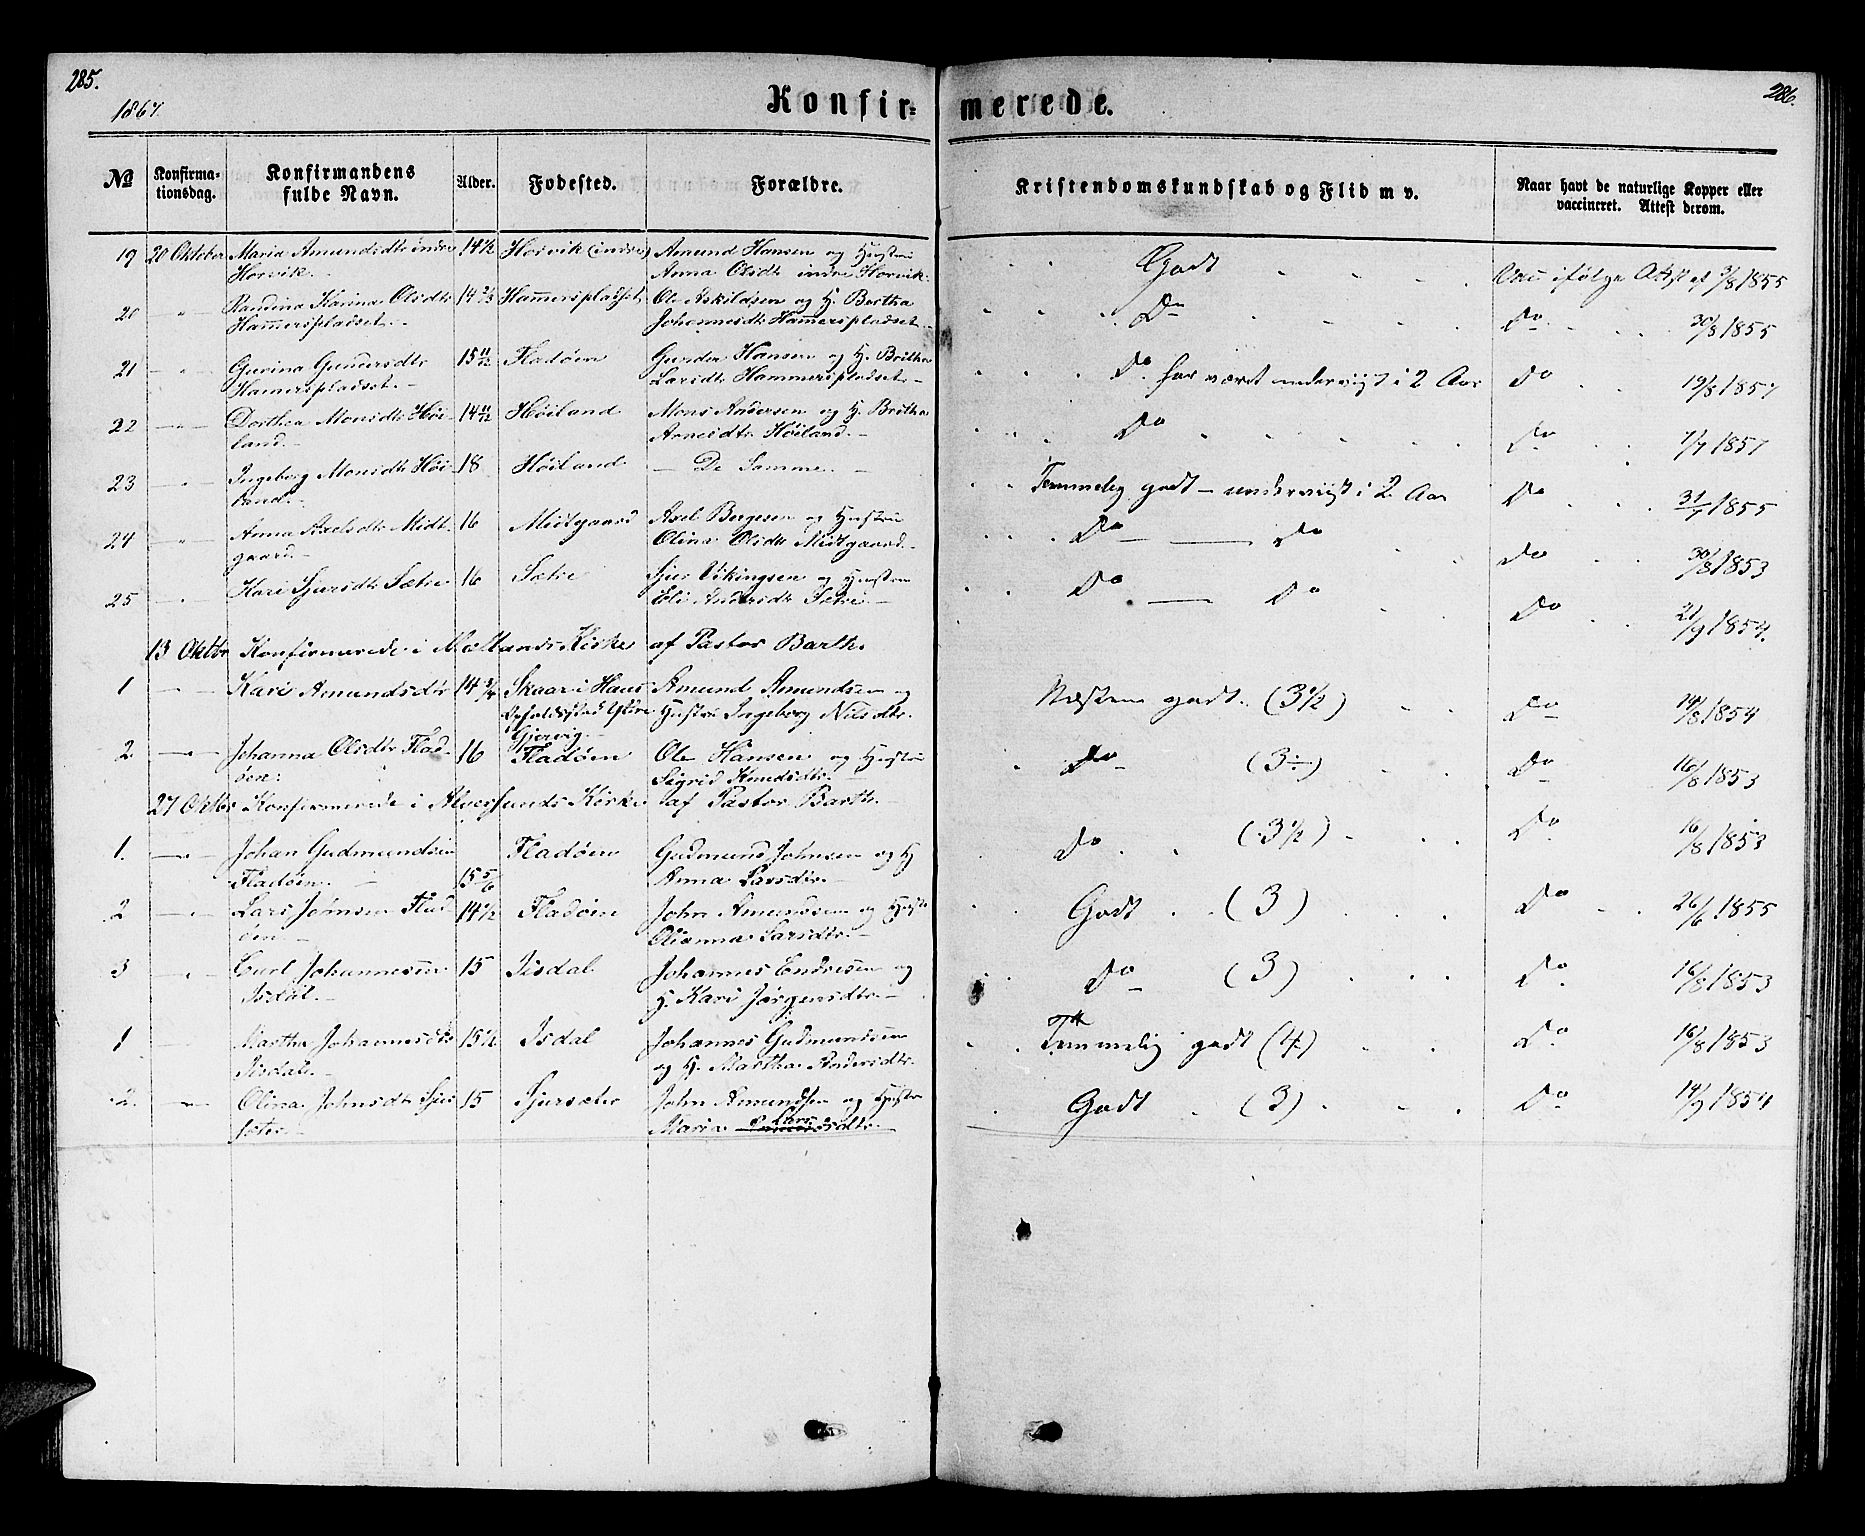 285.
1867.
Konfir=
merede.
286.
No
Konfirma-
tionsdag.
Konfirmandens
fulde Navn.
Alder.
Fødested.
Forældre.
Kristendomskundskab og Flid m v.
Naar havt de naturlige Kopper eller
vaccineret. Attest derom.
19 20 Oktober Maria Amundsdtr indre 14 1/2 Horvik (indre) Amund Hansen og Hustru
Horvik.- Anna Olsdtr indre Horvik.
Godt
Vac ifølge Attst af 3/8 1855
20 -"- Randina Karina Olsdtr 14 2/3 Hamerspladset Ole Askildsen og H. Bertha
Hamerspladset.- Johannesdtr Hamerspladset.-
Do
Do 30/8 1855
21 -"- Gurina Gundersdtr 15 11/12 Fladøen Gunder Hansen og H. Britha
Hamerspladset.- Larsdtr Hammerspladset.-
Do. har været underviist i 2 Aar
Do 19/8 1857
22 -"- Dorthea Monsdtr Høi- 14 11/12 Høiland Mons Andersen og H. Britha
land.- Arnesdtr Høiland.-
Do
Do 1/7 1857
23 -"- Ingeborg Monsdtr Høi- 18 Høiland - De Samme. -
land.-
Temmelig godt - underviist i 2 Aar
Do 31/7 1855
24 -"- Anna Axelsdtr Midt- 16 Midtgaard Axel Bergesen og Hustru
gaard.- Olina Olsdtr Midtgaard.-
Do - Do
Do 30/8 1853
25 -"- Kari Sjursdtr Sætre 16 Sætre Sjur Vikingsen og Hustru
Eli Andersdtr Sætre.-
Do - Do
Do 21/9 1854.
13 Oktbr Konfirmerede i Mællands Kirke af Pastor Barth.
1 -"- Kari Amundsdtr 14 3/4 Skaar i Haus Amund Amundsen og
Opholdssted Ydre Hustru Ingeborg Nilsdtr.
Gjervig.-
Næsten godt. (3 1/2)
Do 14/8 1854
2. -"- Johanna Olsdtr Flad- 16 Fladøen Ole Hansen og Hustru
øen. Sigrid Knudsdtr.-
Do (3÷)
Do 16/8 1853
27 Oktbr Konfirmerede i Alversunds Kirke af Pastor Barth.-
1. -"- Johan Gudmundsen Fladøen Gudmund Johnsen og H
Fladøen. - 15 5/6 Anna Larsdtr.-
Do (3 1/2)
Do 16/8 1853
2 -"- Lars Johnsen Flad- 14 1/2 Fladøen John Amundsen og Hustr
øen - Olianna Larsdtr.-
Godt (3)
Do 26/6 1855
3 -"- Carl Johannesen 15 Isdal Johannes Endresen og
Isdal.- H. Kari Jørgensdtr.-
Do (3)
Do 16/8 1853
1 - Martha Johannesdtr 15 1/2 Isdal Johannes Gudmundsen
Isdal.- og H. Martha Andersdtr.
Temmelig godt (4)
Do 16/8 1853
2. -"- Olina Johnsdtr Sjur- 15 Sjursæter John Amundsen og Hustru
sæter.- Maria Larsdtr.-
Godt (3)
Do 14/9 1854